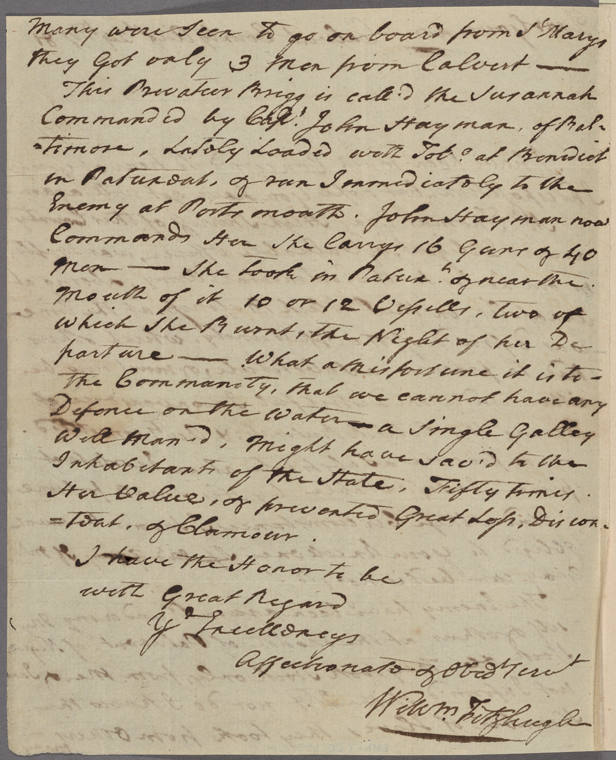 Many were Seen to go on board from St Marys
they Got only 3 Men from Calvert —
This Privateer Brigg is call'd the Susannah
Commanded by Capt. John Hayman, of Bal-
=timore, Lately Loaded with Tobo. at Benedict
in Patuxent, & run Immediately to the
Enemy at Portsmouth. John Hayman now
Commands Her She Carrys 16 Guns & 40
Men — She took in Patuxt. & near the
Mouth of it 10 or 12 Vessells, two of
which She Burnt, the Night of her De
parture — What a misfortune it is to-
the Community, that we cannot have any
Defence on the Water — a Single Galley
Well Man'd, Might have Sav'd to the
Inhabitants of the State, Fifty times
Her Value, & prevented Great Loss, Discon-
=tent, & Clamour.
I have the Honor to be
with Great Regard
Yr Excellencys
Affectionate & Obedt Servt
Willm. Fitzhugh